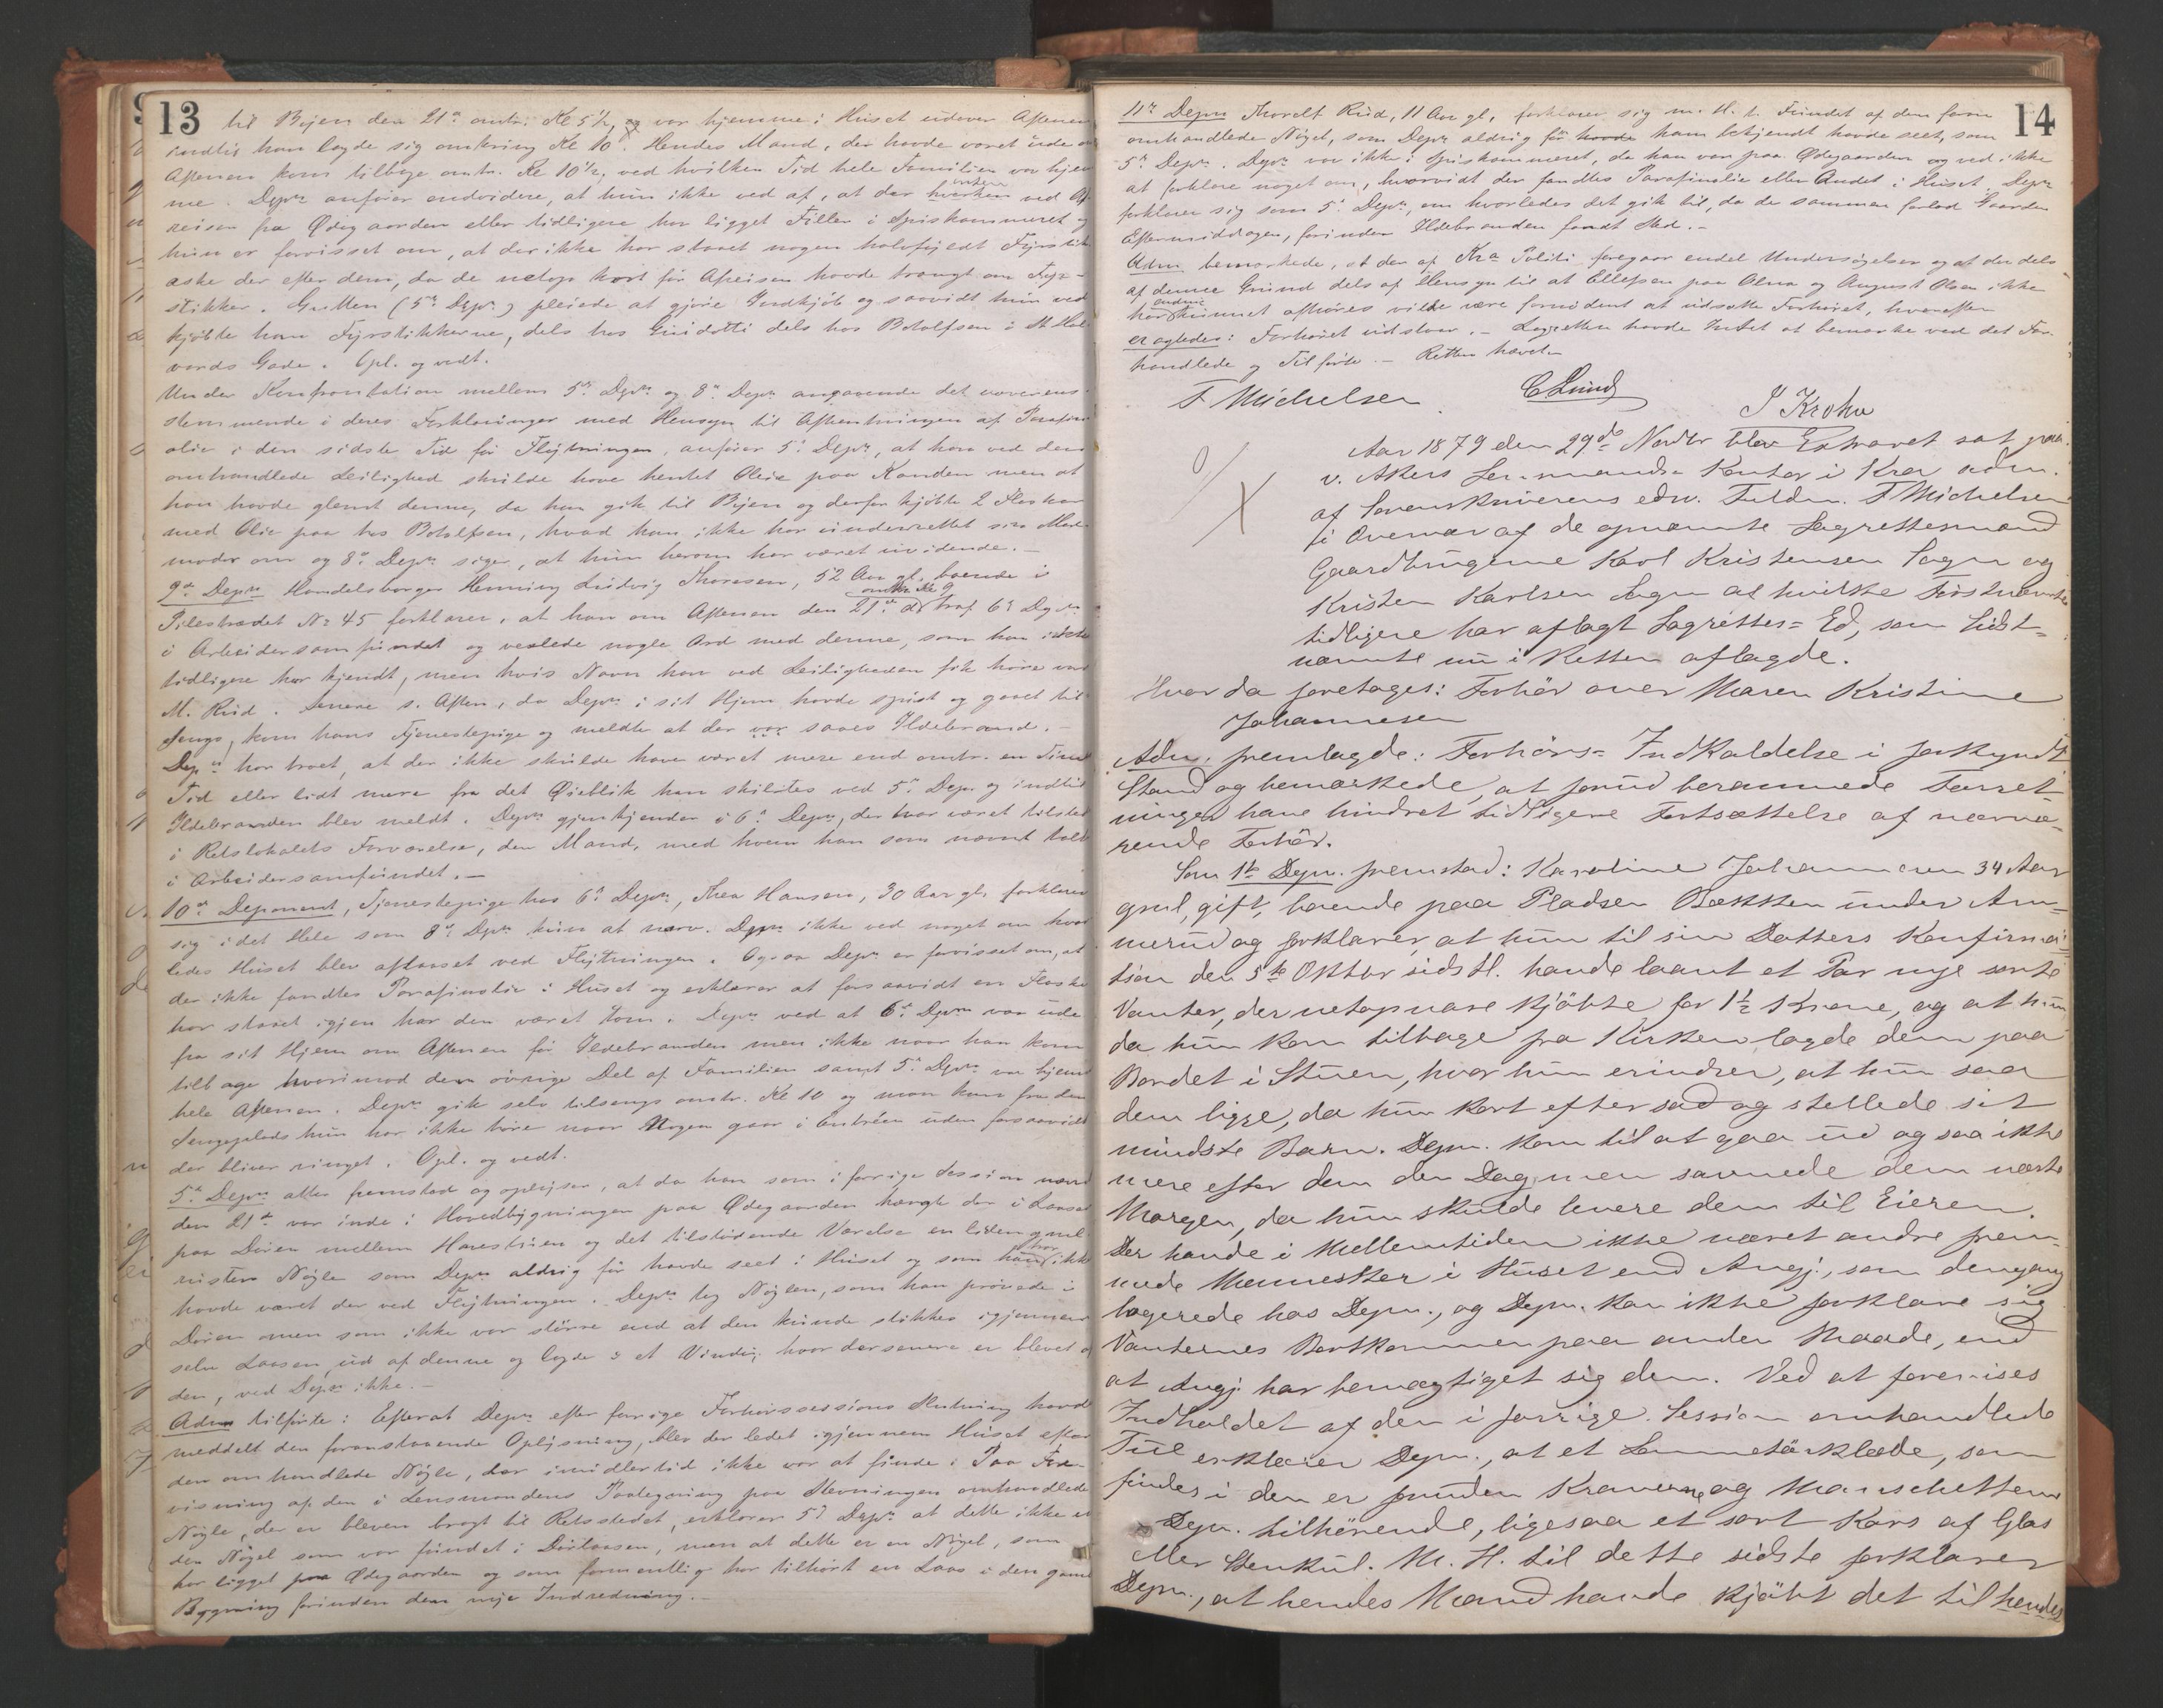 13
til Byen den 21de omtr. Kl 5½, og var hjemme i Huset udover Aftenen
indtil han lagde sig omkring Kl 10. Hendes Mand, der havde været ude om
Aftenen kom tilbage omtr. Kl 10½, ved hvilken Tid hele Familien var hjem
me. Depn anfører endvidere, at hun ikke ved af, at der hverken ved Af
reisen fra Ødegaarden eller tidligere har ligget Filler i Spiskammeret og
hun er forvisset om, at der ikke har staaet nogen halvfyldt Fyrstik
æske der efter dem, da de netop kort før Afreisen havde trængt om Fyr-
stikker. Gutten (5te Depn) pleiede at gjøre Indkjøb og saavidt hun ved
kjøbte han Fyrstikkerne, dels hos Guidotti dels hos Botolfsen i St Hal
vards Gade. Opl. og vedt.
Under Konfrontation mellem 5te Depn og 8de Depn angaaende det uoverens
stemmende i deres Forklaringer med Hensyn til Afhentningen af Parafin
olie i den sidste Tid før Flytningen, anfører 5te Depn, at han ved den
omhandlede Leilighed skulde have hentet Olie paa Kanden men at
han havde glemt denne, da han gik til Byen og derfor kjøbte 2 Flasker
med Olie paa hos Botolfsen, hvad han ikke har underrettet sin Mad-
moder om og 8de Depn siger, at hun herom har været uvidende. –
9de Depn Handelsborger Henning Ludvig Thoresen, 52 Aar gl. boende i
Pilestrædet No 45 forklarer, at han om Aftenen den 21de omtr. Kl 9 traf 6te Depn
i Arbeidersamfundet og vexlede nogle Ord med denne, som han ikke
tidligere har kjendt, men hvis Navn han ved Leiligheden fik høre var
M. Rud. Senere s. Aften, da Depn i sit Hjem havde spist og gaaet til
sengs, kom hans Tjenestepige og meldte at der var saaes Ildebrand. –
Depn har troet, at der ikke skulde have været mere end omtr. en Times
Tid eller lidt mere fra det Øieblik han skiltes ved 5te Depn og indtil
Ildebranden blev meldt. Depn gjenkjender i 6te Depn, der har været tilsted
i Retslokalets Forværelse, den Mand, med hvem han som nævnt talte
i Arbeidersamfundet. –
10de Deponent, Tjenestepige hos 6te Depn, Thea Hansen, 30 Aar gl. forklarer
sig i det Hele som 8de Depn kun at nærv. Depn ikke ved noget om hvor
ledes Huset blev aflaaset ved Flytningen. Ogsaa Depn er forvisset om, at
der ikke fandtes Parafinolie i Huset og erklærer at forsaavidt en Flaske
har staaet igjen har den været tom. Depn ved at 6te Depn var ude
fra sit Hjem om Aftenen før Ildebranden men ikke naar han kom
tilbage hvorimod den øvrige Del af Familien samt 5te Depn var hjemme
hele Aftenen. Depn gik selv tilsengs omtr. Kl 10 og man kan fra den
Sengeplads hun har ikke høre naar Nogen gaar i Entréen uden forsaavidt
der bliver ringet. Opl. og vedt.
5te Depn atter fremstod og oplyser, at da han som i forrige Session nævnt
den 21de var inde i Hovedbygningen paa Ødegaarden hængte der i Laasen
paa Døren mellem Havestuen og det tilstødende Værelse en liden gml
rusten Nøgle som Depn aldrig før havde seet i Huset og som han tror ikke
havde været der ved Flytningen. Depn tog Nøglen, som han prøvede i
Døren men som ikke var større end at den kunde stikkes igjennem
selve Laasen, ud af denne og lagde i et Vindu; hvor der senere er blevet af
den, ved Depn ikke. –
Adm tilførte: Efterat Depn efter forrige Forhørssessions Slutning havde
meddelt den foranstaaende Oplysning, blev der ledet igjennem Huset efter
den omhandlede Nøgle, der imidlertid ikke var at finde. Paa Fore-
visning af den i Lensmandens Paategning paa Stevningen omhandlede
Nøgle, der er bleven bragt til Retsstedet, erklærer 5te Depn at dette ikke er
den Nøgel som var fundet i Dørlaasen, men at dette er en Nøgel, som
har ligget paa Ødegaarden og som formentlig har tilhørt en Laas i den gamle
Bygning forinden den nye Indredning. –
14
11te Depn Thorolf Rud, 11 Aar gl, forklarer sig m. H. t. Fundet af den foran
omhandlede Nøgel, som Depn aldrig før havde ham bekjendt havde seet, som
5te Depn. Depn var ikke i Spiskammeret, da han var paa Ødegaarden og ved ikke
at forklare noget om, hvorvidt der fandtes Parafinolie eller Andet i Huset. Depn
forklarer sig som 5te Depn, om hvorledes det gik til, da de sammen forlod Gaarden
Eftermiddagen, forinden Ildebranden fandt Sted. –
Adm bemærkede, at der af Kra Politi foregaar endel Undersøgelser og at der dels
af denne Grund dels af Hensyn til at Ellefsen paa Alna og August Olsen ikke
har endnu kunnet afhøres vilde være fornødent at udsætte Forhøret, hvorefter
eragtedes: Forhøret udstaar. – Lagretten havde Intet at bemærke ved det For-
handlede og Tilførte. – Retten hævet. –
F Michelsen C Lund J Krohn
Aar 1879 den 29de Novbr blev Extraret sat paa
v. Akers Lensmands Kontor i Kra adm.
af Sorenskriverens edsv. Fuldm. F Michelsen
i Overvær af de opnævnte Lagrettesmænd
Gaardbrugerne Karl Kristensen Sogn og
Kristen Karlsen Sogn af hvilke Førstnævnte
tidligere har aflagt Lagrettes=Ed, som Sidst=
nævnte nu i Retten aflagde.
Hvor da foretages: Forhør over Maren Kristine
Johannesen
Adm. fremlagde: Forhørs=Indkaldelse i forkyndt
Stand og bemærkede, at forud berammede Forret-
ninger have hindret tidligere Fortsættelse af nærvæ-
rende Forhør.
Som 1te Depn. fremstod: Karoline Johannesen 34 Aar
gml, gift, boende paa Pladsen Bækken under Am-
merud og forklarer, at hun til sin Datters Konfirma-
tion den 5te Oktbr sidstl. havde laant et Par nye sorte
Vanter, der netop vare kjöbte for 1½ Krone, og at hun
da hun kom tilbage fra Kirken lagde dem paa
Bordet i Stuen, hvor hun erindrer, at hun saa
dem ligge, da hun kort efter sad og stellede sit
mindste Barn. Depn. kom til at gaa ud og saa ikke
mere efter dem den Dag, men savnede dem næste
Morgen, da hun skulde levere dem til Eieren.
Der havde i Mellemtiden ikke været andre frem-
mede Mennesker i Huset end Angj., som dengang
logerede hos Depn., og Depn. kan ikke forklare sig
Vanternes Bortkommen paa anden Maade, end
at Angj. har bemægtiget sig dem. Ved at forevises
Indholdet af den i forrige Session omhandlede
Tül erklærer Depn., at et Lommetörklæde, som
findes i den er foruden Kraverne og Manschetterne
Depn. tilhörende, ligesaa et sort Kors af Glas
eller Stenkul. M. H. til dette sidste forklarer
Depn., at hendes Mand havde kjöbt det til hendes